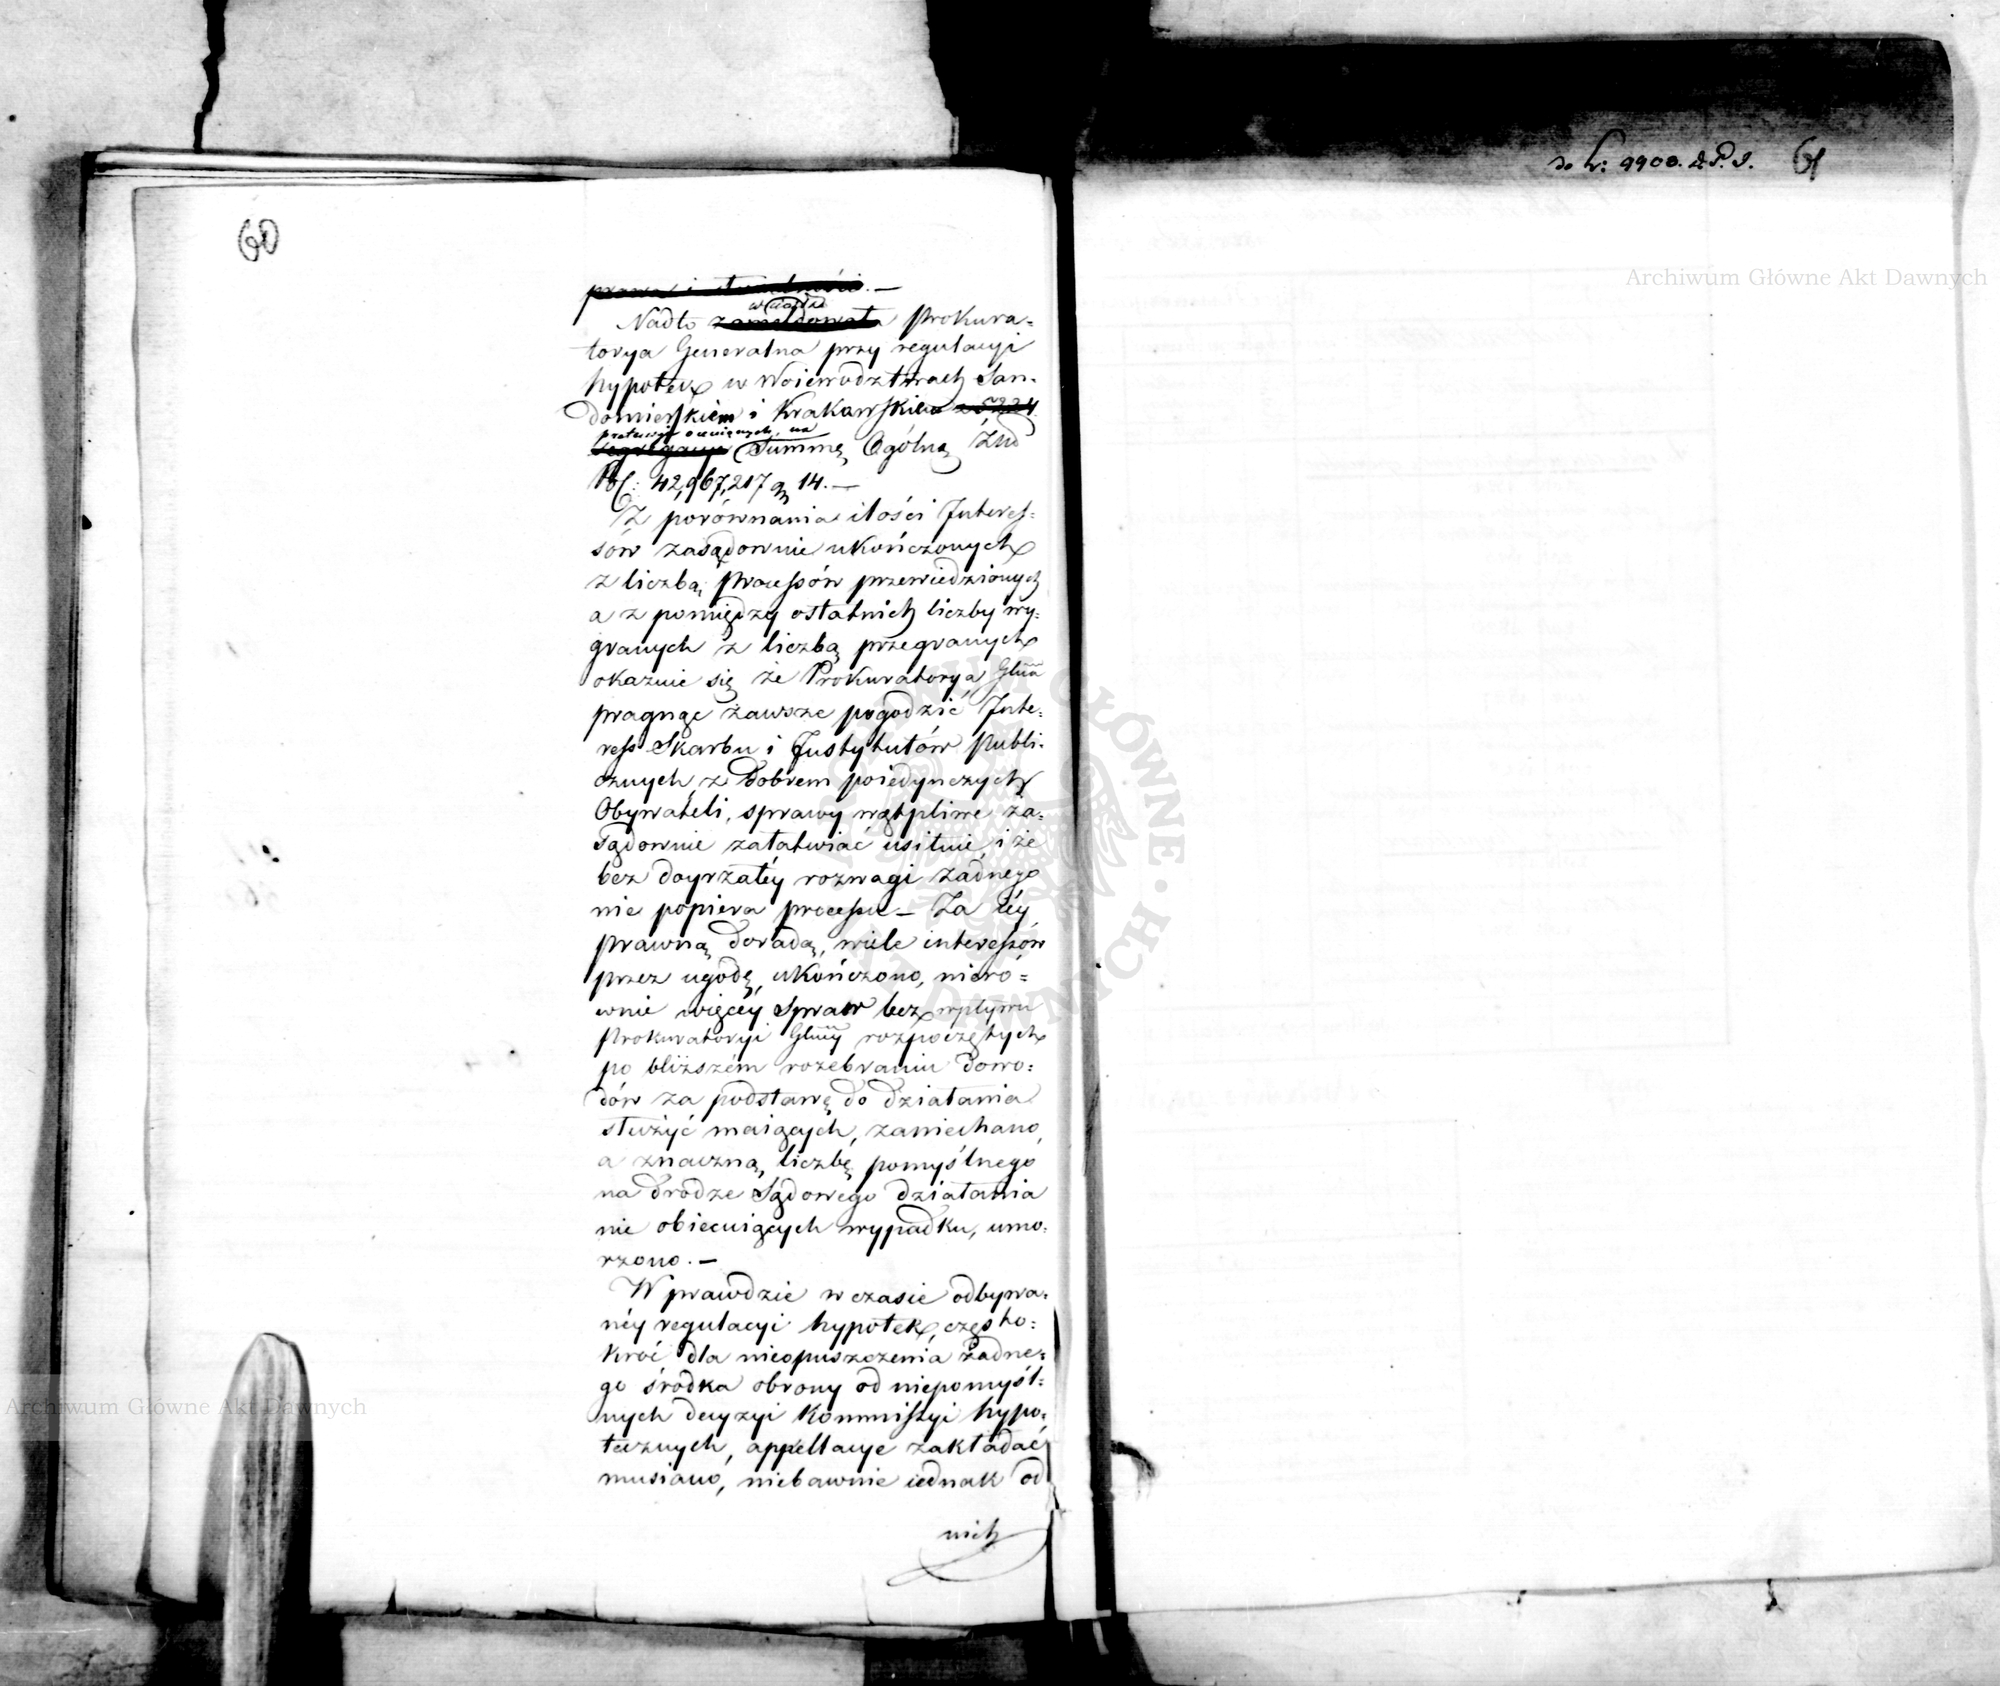 60
prawa i słuszności. —
władze
Nadto zameldowała Prokura=
torya Generalna przy regulacyi
hypotek w Woiewodztwach San=
domierskiem i Krakowskiem z 5224
pretensyi na
segregacyi Summę Ogólną Złłd
Pol: 42,967,217 gr 14. —
Z porównania ilości Interes=
sów zasądownie ukończonych
z liczbą Processów przewiedzionych
a z pomiędzy ostatnich liczby wy=
granych z liczbą przegranych
okazuie się że Prokuratorya Glna
pragnąc zawsze pogodzić Inte=
ress Skarbu i Instytutów Publi=
cznych z dobrem poiedynczych
Obywateli, sprawy wątpliwe za=
sądownie załatwiać usiłuie, i że
bez doyrzałéy rozwagi żadnego
nie popiera processu — Za iéy
prawną doradą, wiele interessów
przez ugodę, ukończono, nieró=
wnie więcéy Spraw bez wpływu
Prokuratoryi Glnéy rozpoczętych
po bliższém rozebraniu dowo=
dów za podstawę do działania
służyć maiących, zaniechano,
a znaczną liczbę pomyślnego
na drodze Sądowego działania
nie obiecuiących wypadku, umo=
rzono. —
W prawdzie w czasie odbywa=
néy regulacyi hypotek, często=
kroć dla nieopuszczenia żadne=
go środka obrony od niepomyśl=
nych decyzyi Kommissyi hypo=
tecznych, appellacye zakładać
musiano, niebawnie iednak od
nich
do N: 9900. D.P.S. 61
Archiwum Główne Akt Dawnych
Archiwum Główne Akt Dawnych
ARCHIWUM GŁÓWNE AKT DAWNYCH